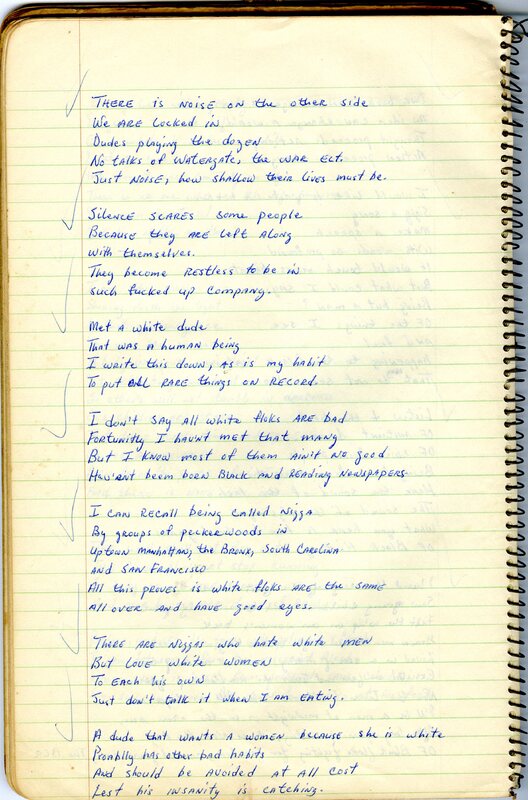 THERE is NOISE ON the other side
We ARE Locked in
Dudes playing the dozen
No talks of WATERgate, the WAR Ect.
Just NOISE, how shallow their lives must be.
Silence SCARES some people
Because they ARE left Along
with themselves.
They become Restless to be in
such fucked up company.
Met a white dude
That was a human being
I write this down, as is my habit
To put all RARE things ON RECORD.
I don't SAY all white floks ARE bad
FORtunitly I haun't met that many
But I KNOW most of them AIN'T NO good
Hav'rnt beem born Black AND READING NEWSPAPERS
I CAN RECALL being CALLED Nigga
By groups of peckerwoods in
Uptown MANHATTAN, the BRONX, South CAROLINA
AND SAN FRANCISCO
All this proves is white floks ARE the SAME
All over AND HAVE good eyes.
THERE ARE Niggas who hate white MEN
But LOVE white women
To EACH his OWN
Just don't talk it when I am EATING.
A dude that WANTS A women because she is white
Proablly has other bad habits
AND should be AVOIDED AT All cost
Lest his INSANITY is catching.